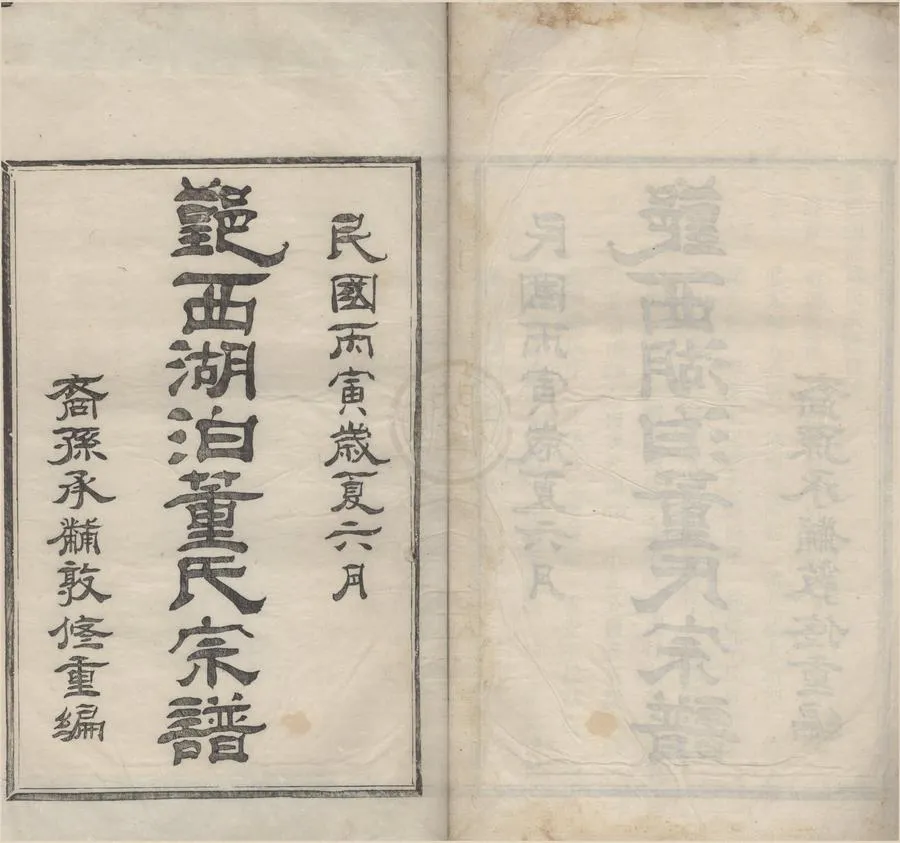 民國丙寅歲夏六月
鄞西湖泊董氏宗譜
裔孫承黼敦修重編